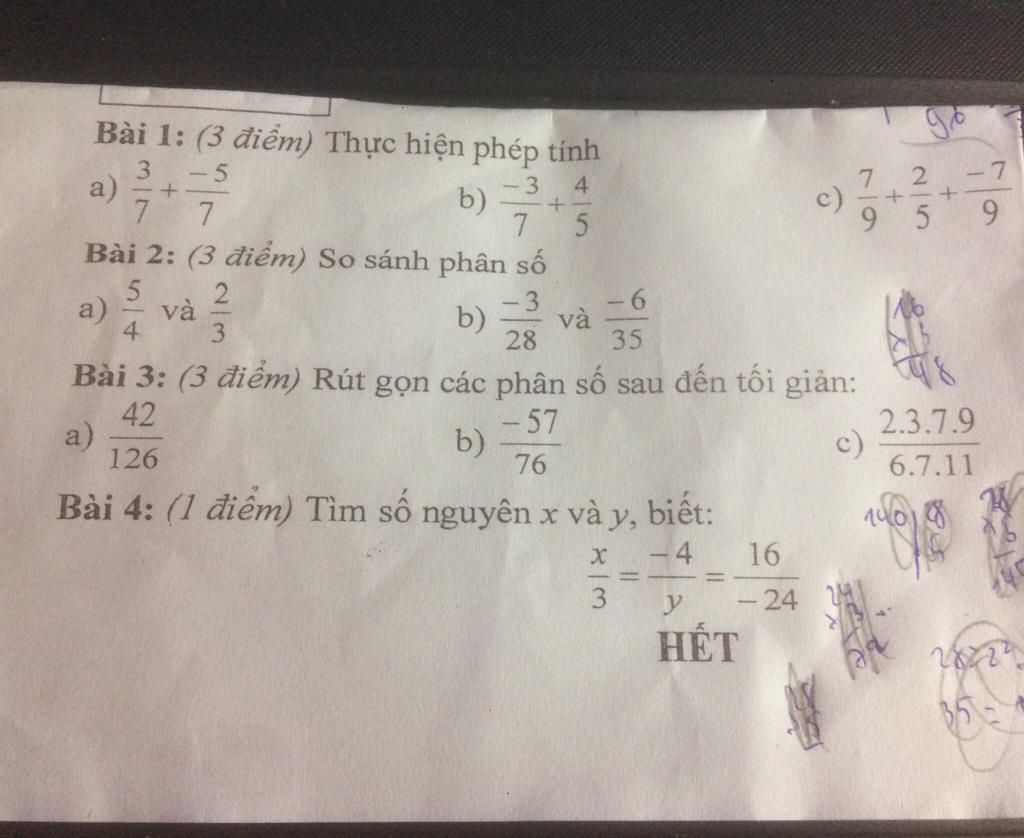 Bài 1: (3 điểm) Thực hiện phép tính
a) 3/7 + -5/7 b) -3/7 + 4/5 c) 7/9 + 2/5 + -7/9
Bài 2: (3 điểm) So sánh phân số
a) 5/4 và 2/3 b) -3/28 và -6/35
Bài 3: (3 điểm) Rút gọn các phân số sau đến tối giản:
a) 42/126 b) -57/76 c) 2.3.7.9/6.7.11
Bài 4: (1 điểm) Tìm số nguyên x và y, biết:
x/3 = -4/y = 16/-24
HẾT